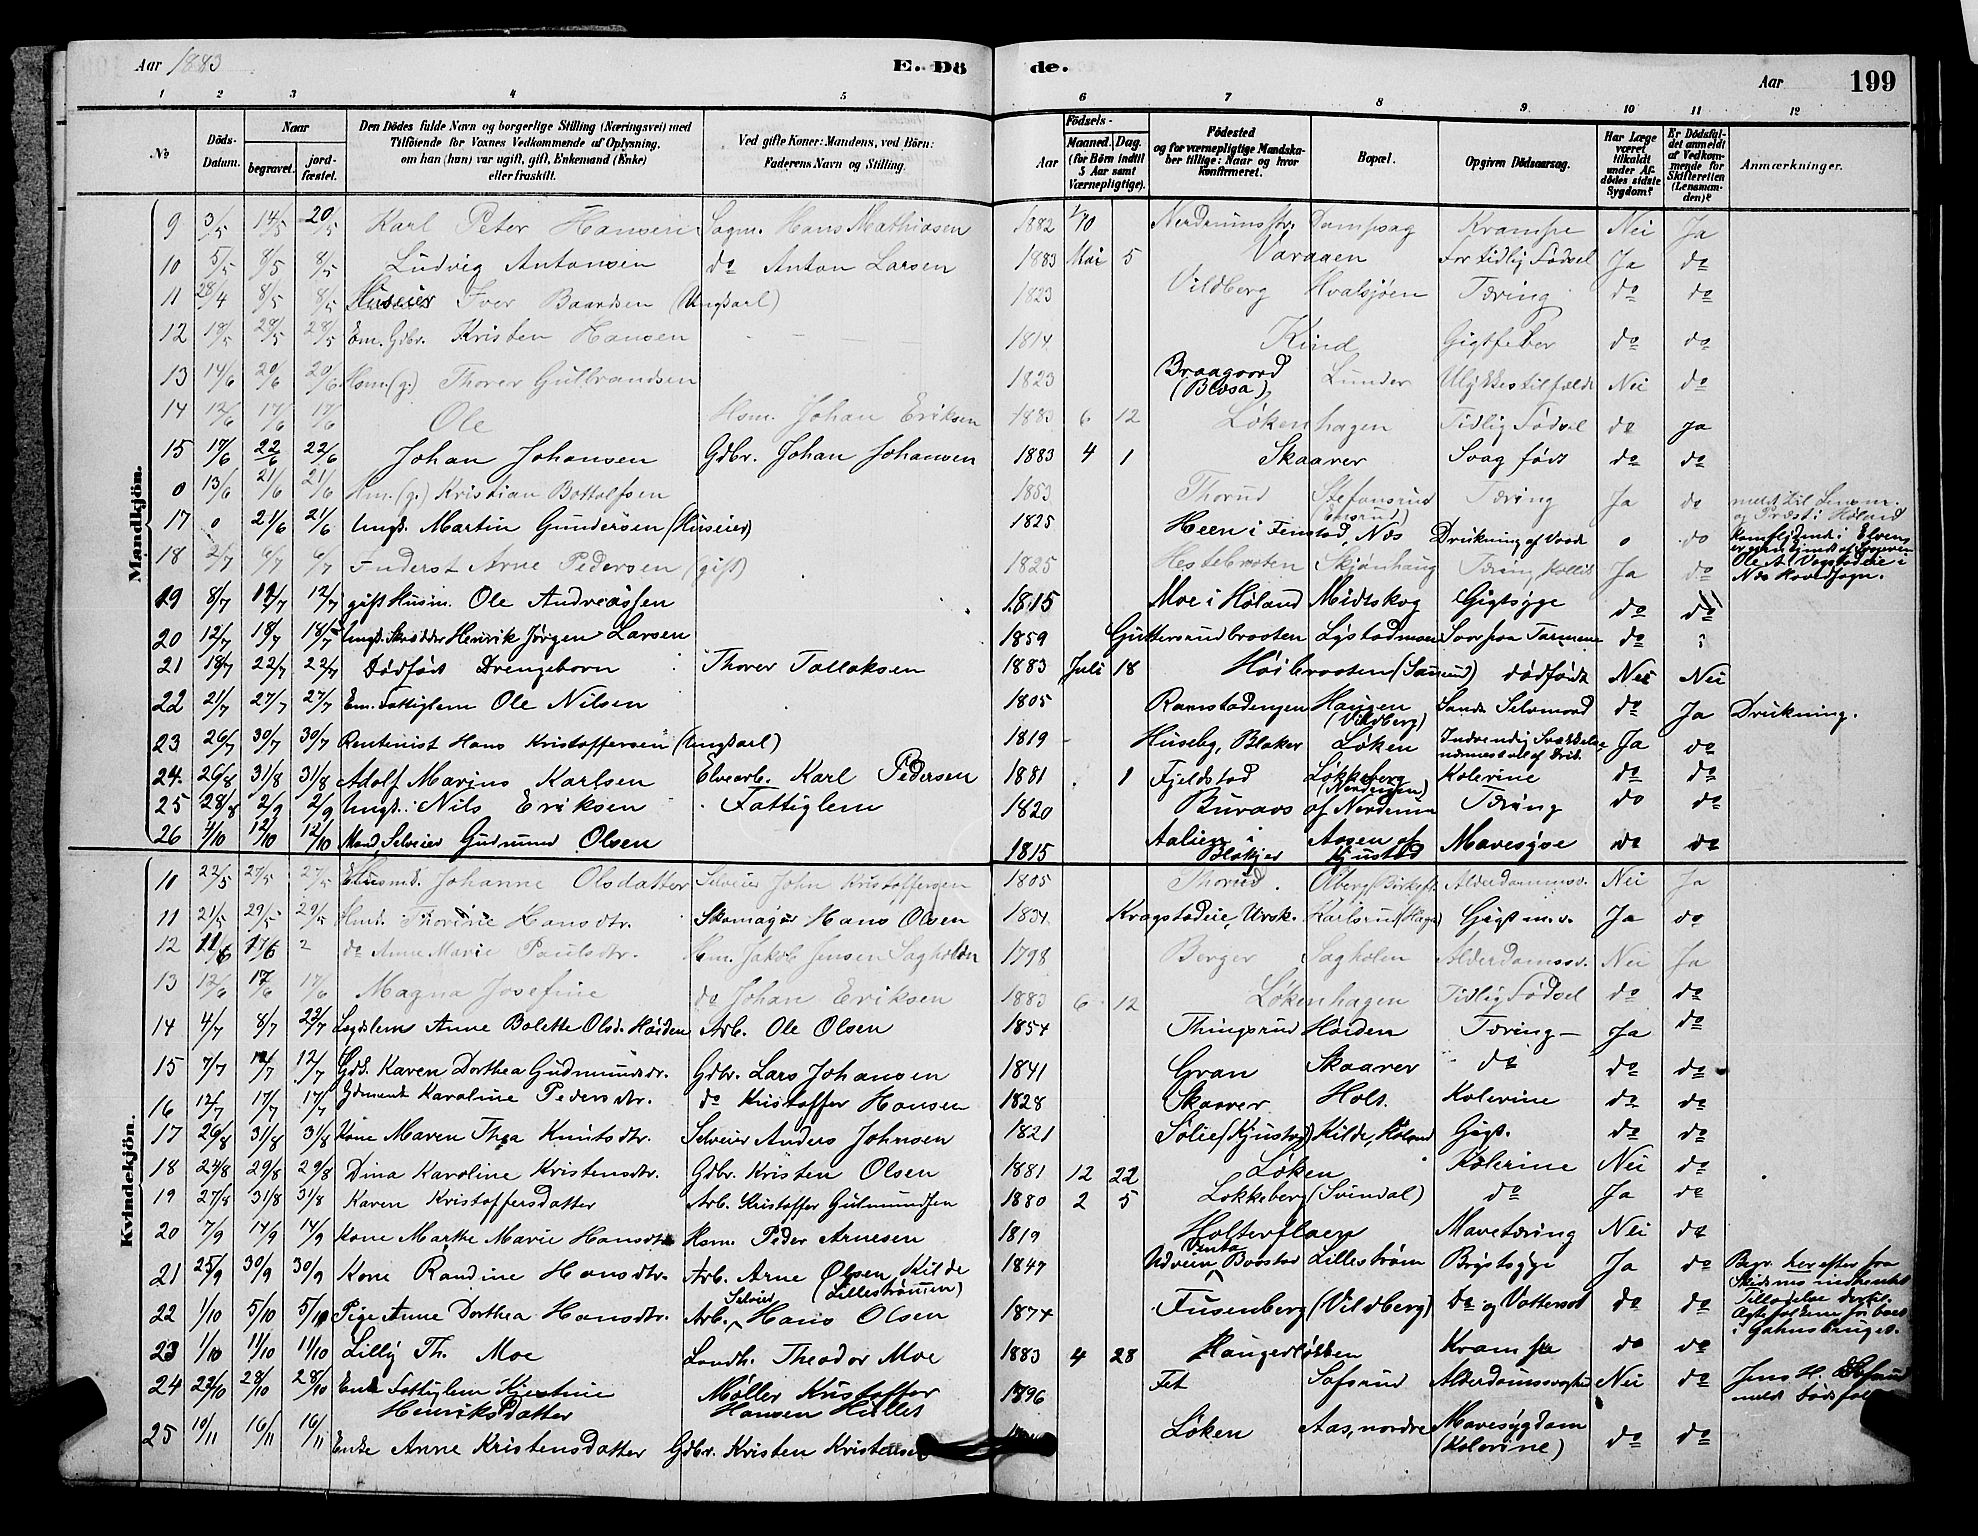 Aar 1883
E. Dö
de.
Aar
199
1 2 3 4 5 6 7 8 9 10 11 12
No
Döds-Datum.
Naar
begravet.
jordfæstet.
Den Dödes fulde Navn og borgerlige Stilling (Næringsvei) med
Tilföiende for Voxnes Vedkommende af Oplysning,
om han (hun) var ugift, gift, Enkemand (Enke)
eller fraskilt.
Ved gifte Koner: Mandens, ved Börn:
Faderens Navn og Stilling.
Aar
Födsels-
Maaned. Dag.
(for Börn indtil
5 Aar samt
Værnepligtige).
Födested
og for værnepligtige Mandska-
ber tillige: Naar og hvor
konfirmeret.
Bopæl.
Opgiven Dödsaarsag.
Har Læge
været
tilkaldt
under Af-
dödes sidste
Sygdom?
Er Dödsfal-
det anmeldt
af Vedkom-
mende for
Skifteretten
(Lensman-
den)?
Anmærkninger.
Mandkjön.
9 3/5 14/5 20/5 Karl Peter Hansen Sagm. Hans Mathiasen 1882 Dampsag Krampe Nei Ja
10 5/5 8/5 8/5 Ludvig Antonsen do Anton Larsen 1883 Mai 5 Varaaen For tidlig Födsel Ja do
11 28/4 8/5 8/5 Huseier Iver Baardsen (Ungkarl) 1823 Vildberg Hvalsjøen Tæring do do
12 19/5 28/5 28/5 Em. Gdbr. Kristen Hansen 1814 Kind Gigtfeber do do
13 14/6 20/6 20/6 Hsm. (g.) Thorer Gulbrandsen 1823 Braagaard Lunder Ulykkestilfælde Nei do
14 12/6 17/6 17/6 Ole Hsm. Johan Eriksen 1883 6 12 Løkenhagen Tidlig Födsel do Ja
15 17/6 22/6 22/6 Johan Johansen Gdbr. Johan Johansen 1883 4 1 Skaarer Svag født do do
0 13/6 21/6 21/6 Hm. (g.) Kristian Bottolfsen 1853 Thorud Stefansrud Tæring Ja do meldt til Lensm.
og Præst i Høland
17 0 21/6 21/6 Ungk. Martin Gundersen (Huseier) 1825 Heen i Fenstad, Næs Drukning af Vaade 0 do
18 2/7 6/7 6/7 Inderst Arne Pedersen (gift) 1825 Hestebraaten Skjønhaug Tæring Ja do
Næs Hovedsogn.
19 8/7 12/7 12/7 gift Husm. Ole Andreassen 1815 Moe i Høland Midtskog Gigtsyge do do
20 12/7 18/7 18/7 Ungk. Skrædder Henrik Jørgen Larsen 1859 Guttersrudbraaten Saar paa Tarmene do
21 18/7 22/7 22/7 Dødfødt Drengebarn Thorer Tollaksen 1883 Juli 18 Høibraaten dødfødt Nei Nei
22 21/7 27/7 27/7 Em. Fattiglem Ole Nilsen 1805 Ramstadengen Haugen (Vildberg) Selvmord do Ja Drukning.
23 26/7 30/7 30/7 Rentenist Hans Kristoffersen (Ungkarl) 1819 Huseby, Blaker Løken Indvendig Svækkelse Ja do
24. 26/8 31/8 31/8 Adolf Marius Karlsen Elvearb. Karl Pedersen 1881 1 Fjeldstad Løkkeberg Kolerine do do
25 28/8 2/9 2/9 Ungk. Nils Eriksen Fattiglem 1820 Buraas af Nerdrum Tæring do do
26 4/10 12/10 12/10 Mand, Selveier Gudmund Olsen 1815 Aalien i Blakjer Aagen af Kjustad Mavesyge do do
Kvindekjön.
10 22/5 27/5 27/5 Johanne Olsdatter Selveier John Kristoffersen 1805 Thorud Alderdomssv. Nei Ja
11 21/5 29/5 29/5 Thorine Hansdtr. Skomager Hans Olsen 1834 Kragstadeie, Ursk. Karlsrud Gigt m.v. Ja do
12 11/6 17/6 do Anne Marie Paulsdtr. Hsm. Jakob Jensen Sagholen 1798 Berger Sagholen Alderdomssv. Nei Ja
13 12/6 17/6 17/6 Magna Josefine do Johan Eriksen 1883 6 12 Løkenhagen Tidlig Födsel do do
14 4/7 8/7 22/7 Lægdslem Anne Bolette Olsd. Høiden Arb. Ole Olsen 1854 Thingsrud Høiden Tæring Ja do
15 7/7 12/7 12/7 Gdk. Karen Dorthea Gudmundsdr. Gdbr. Lars Johansen 1841 Gran Skaarer do do do
16 12/7 17/7 17/7 Karoline Pedersdtr. do Kristoffer Hansen 1828 Skaarer Hols. Kolerine do do
17 26/8 31/8 31/8 Kone Maren Thea Knutsdtr. Selveier Anders Johnsen 1821 Solie (Kjustad) Kilde, Høland Gigt. do do
18 24/8 29/8 29/8 Dina Karoline Kristensdtr. Gdbr. Kristen Olsen 1881 12 22 Løken Kolerine Nei do
19 27/8 31/8 31/8 Karen Kristoffersdatter Arb. Kristoffer Gulmundsen 1880 2 5 Løkkeberg (Svindal) do Ja do
20 7/9 14/9 14/9 Kone Marthe Marie Hansdtr. Hsm. Peder Arnesen 1819 Holterflaen Mavetæring Nei do
21 25/9 30/9 30/9 Kone Randine Hansdtr. Arb. Arne Olsen Kilde (Lillestrømmen) 1847 Lillestrøm Brystsyge Ja do Begr. her efter fra
22 1/10 5/10 5/10 Pige Anne Dorthea Hansdtr. Arb. Selveier Hans Olsen 1874 Fusenberg (Vildberg) Do og Vattersot do do Tilladelse dertil.
23 1/10 11/10 11/10 Lilly Th. Moe Landh. Theodor Moe 1883 4 28 Haugerløkken Krampe do do
24 23/10 28/10 28/10 Enke Fattiglem Kjestine Henriksdatter Møller Kristoffer Hansen 1796 Fet Sofsrud Alderdomssvaghed Nei do Jens H.
25 10/11 16/11 16/11 Enke Anne Kristensdatter Gdbr. Kristen Kristensen Løken Aas, nordre Mavesygdam (Kolerine) do do